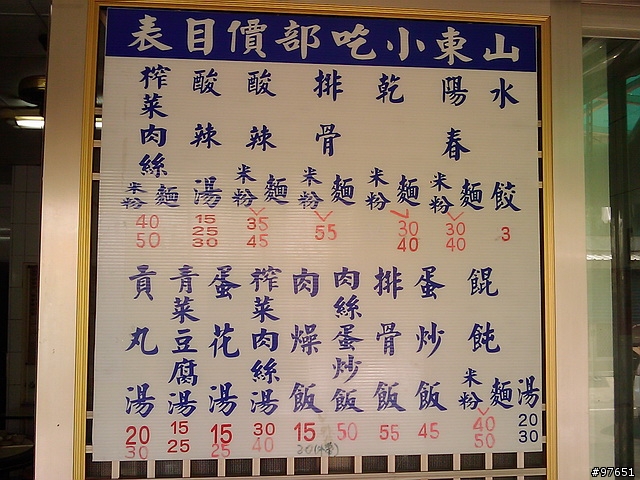 山東小吃部價目表
水餃 3
陽春 米粉 麵 30 40
乾 米粉 麵 30 40
排骨 米粉 麵 55
酸辣 米粉 麵 35 45
酸辣湯 15 25 30
榨菜肉絲 米粉 麵 40 50
餛飩 米粉 麵 40 50 湯 20 30
蛋炒飯 45
排骨飯 55
肉絲蛋炒飯 50
肉燥飯 15
榨菜肉絲湯 30 40
蛋花湯 15 25
青菜豆腐湯 15 25
貢丸湯 20 30
#97651